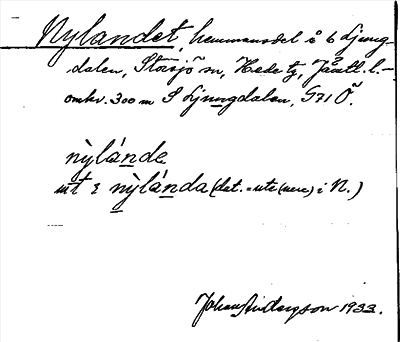 Nylandet, hemmansdel å b Ljung-
dalen, Storsjö sn, Hede tg, Jämtl. l. –
omkr. 300 m S Ljungdalen, G71 Ö.
nỳlánde
ut i nỳlánda (dat. = ute (nere) i N.)
Johan Andersson 1933.